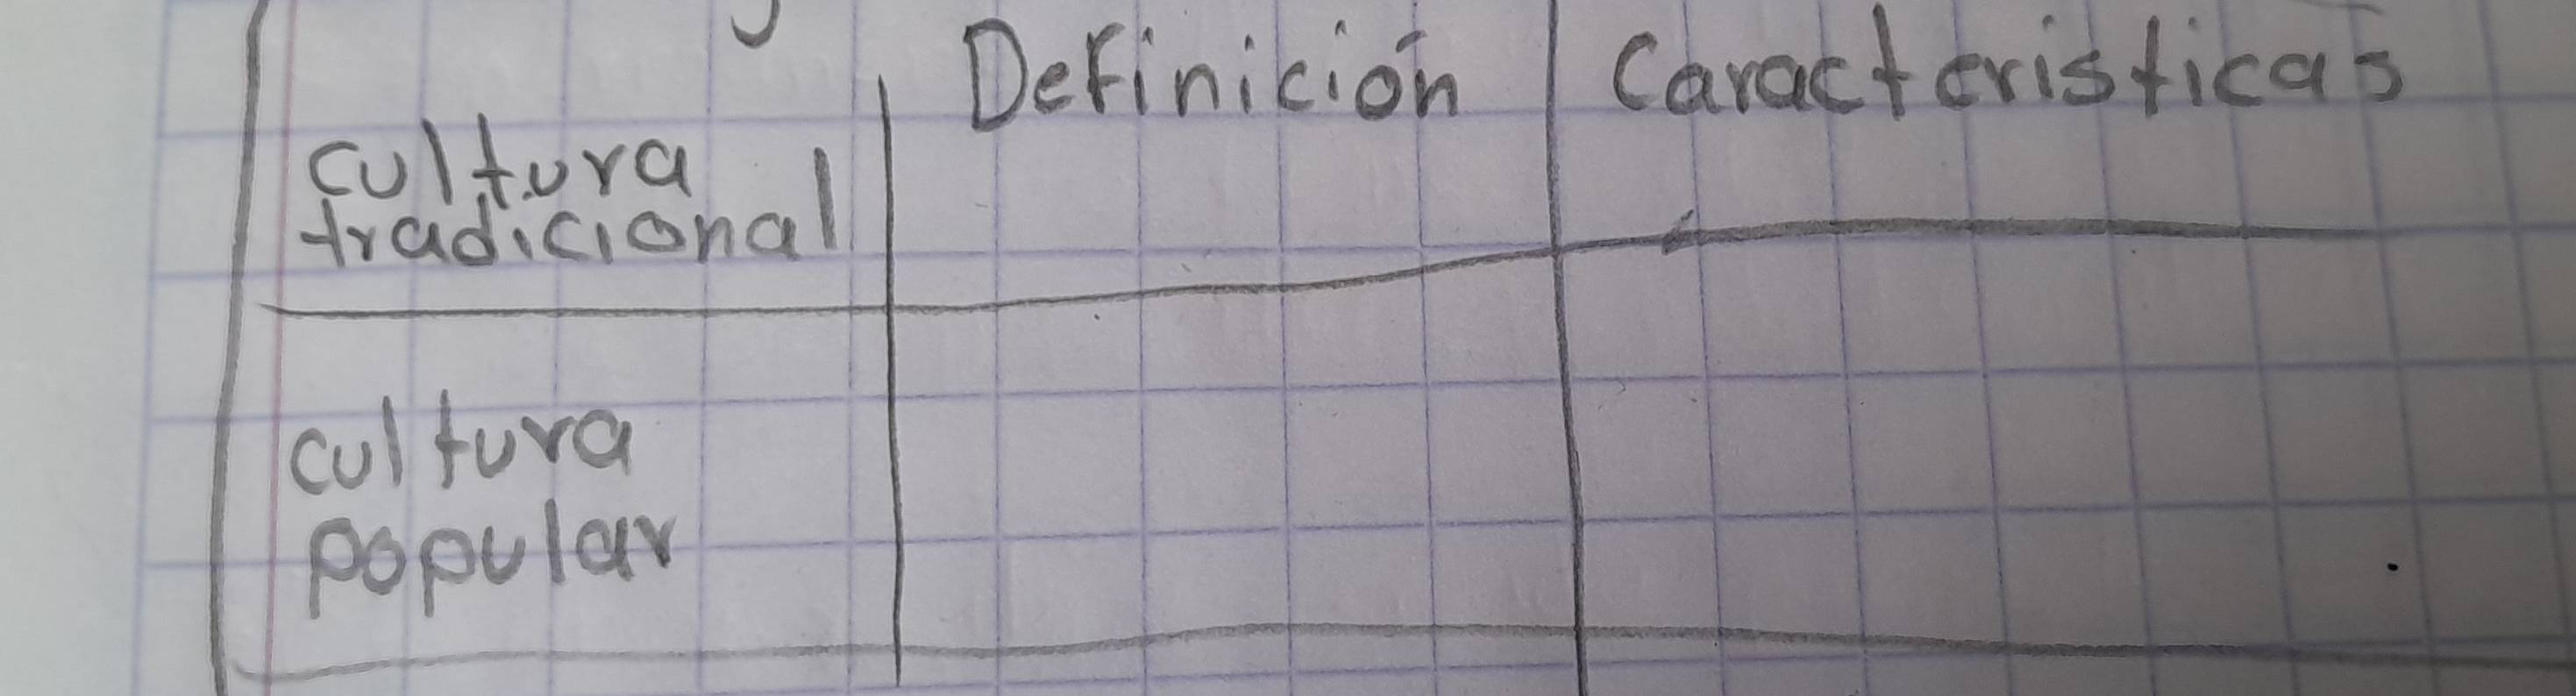 Definición Caracteristicas
cultura
tradicional
cultura
popular